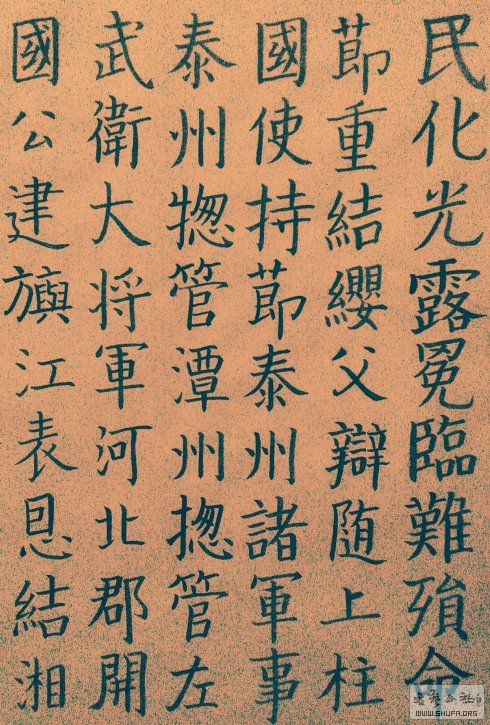 民化光露冕臨難殞命
莭重結纓父辯随上柱
國使持莭泰州諸軍事
泰州揔管潭州揔管左
武衛大将軍河北郡開
國公建旟江表恩結湘
書法公社
WWW.SHUFA.ORG